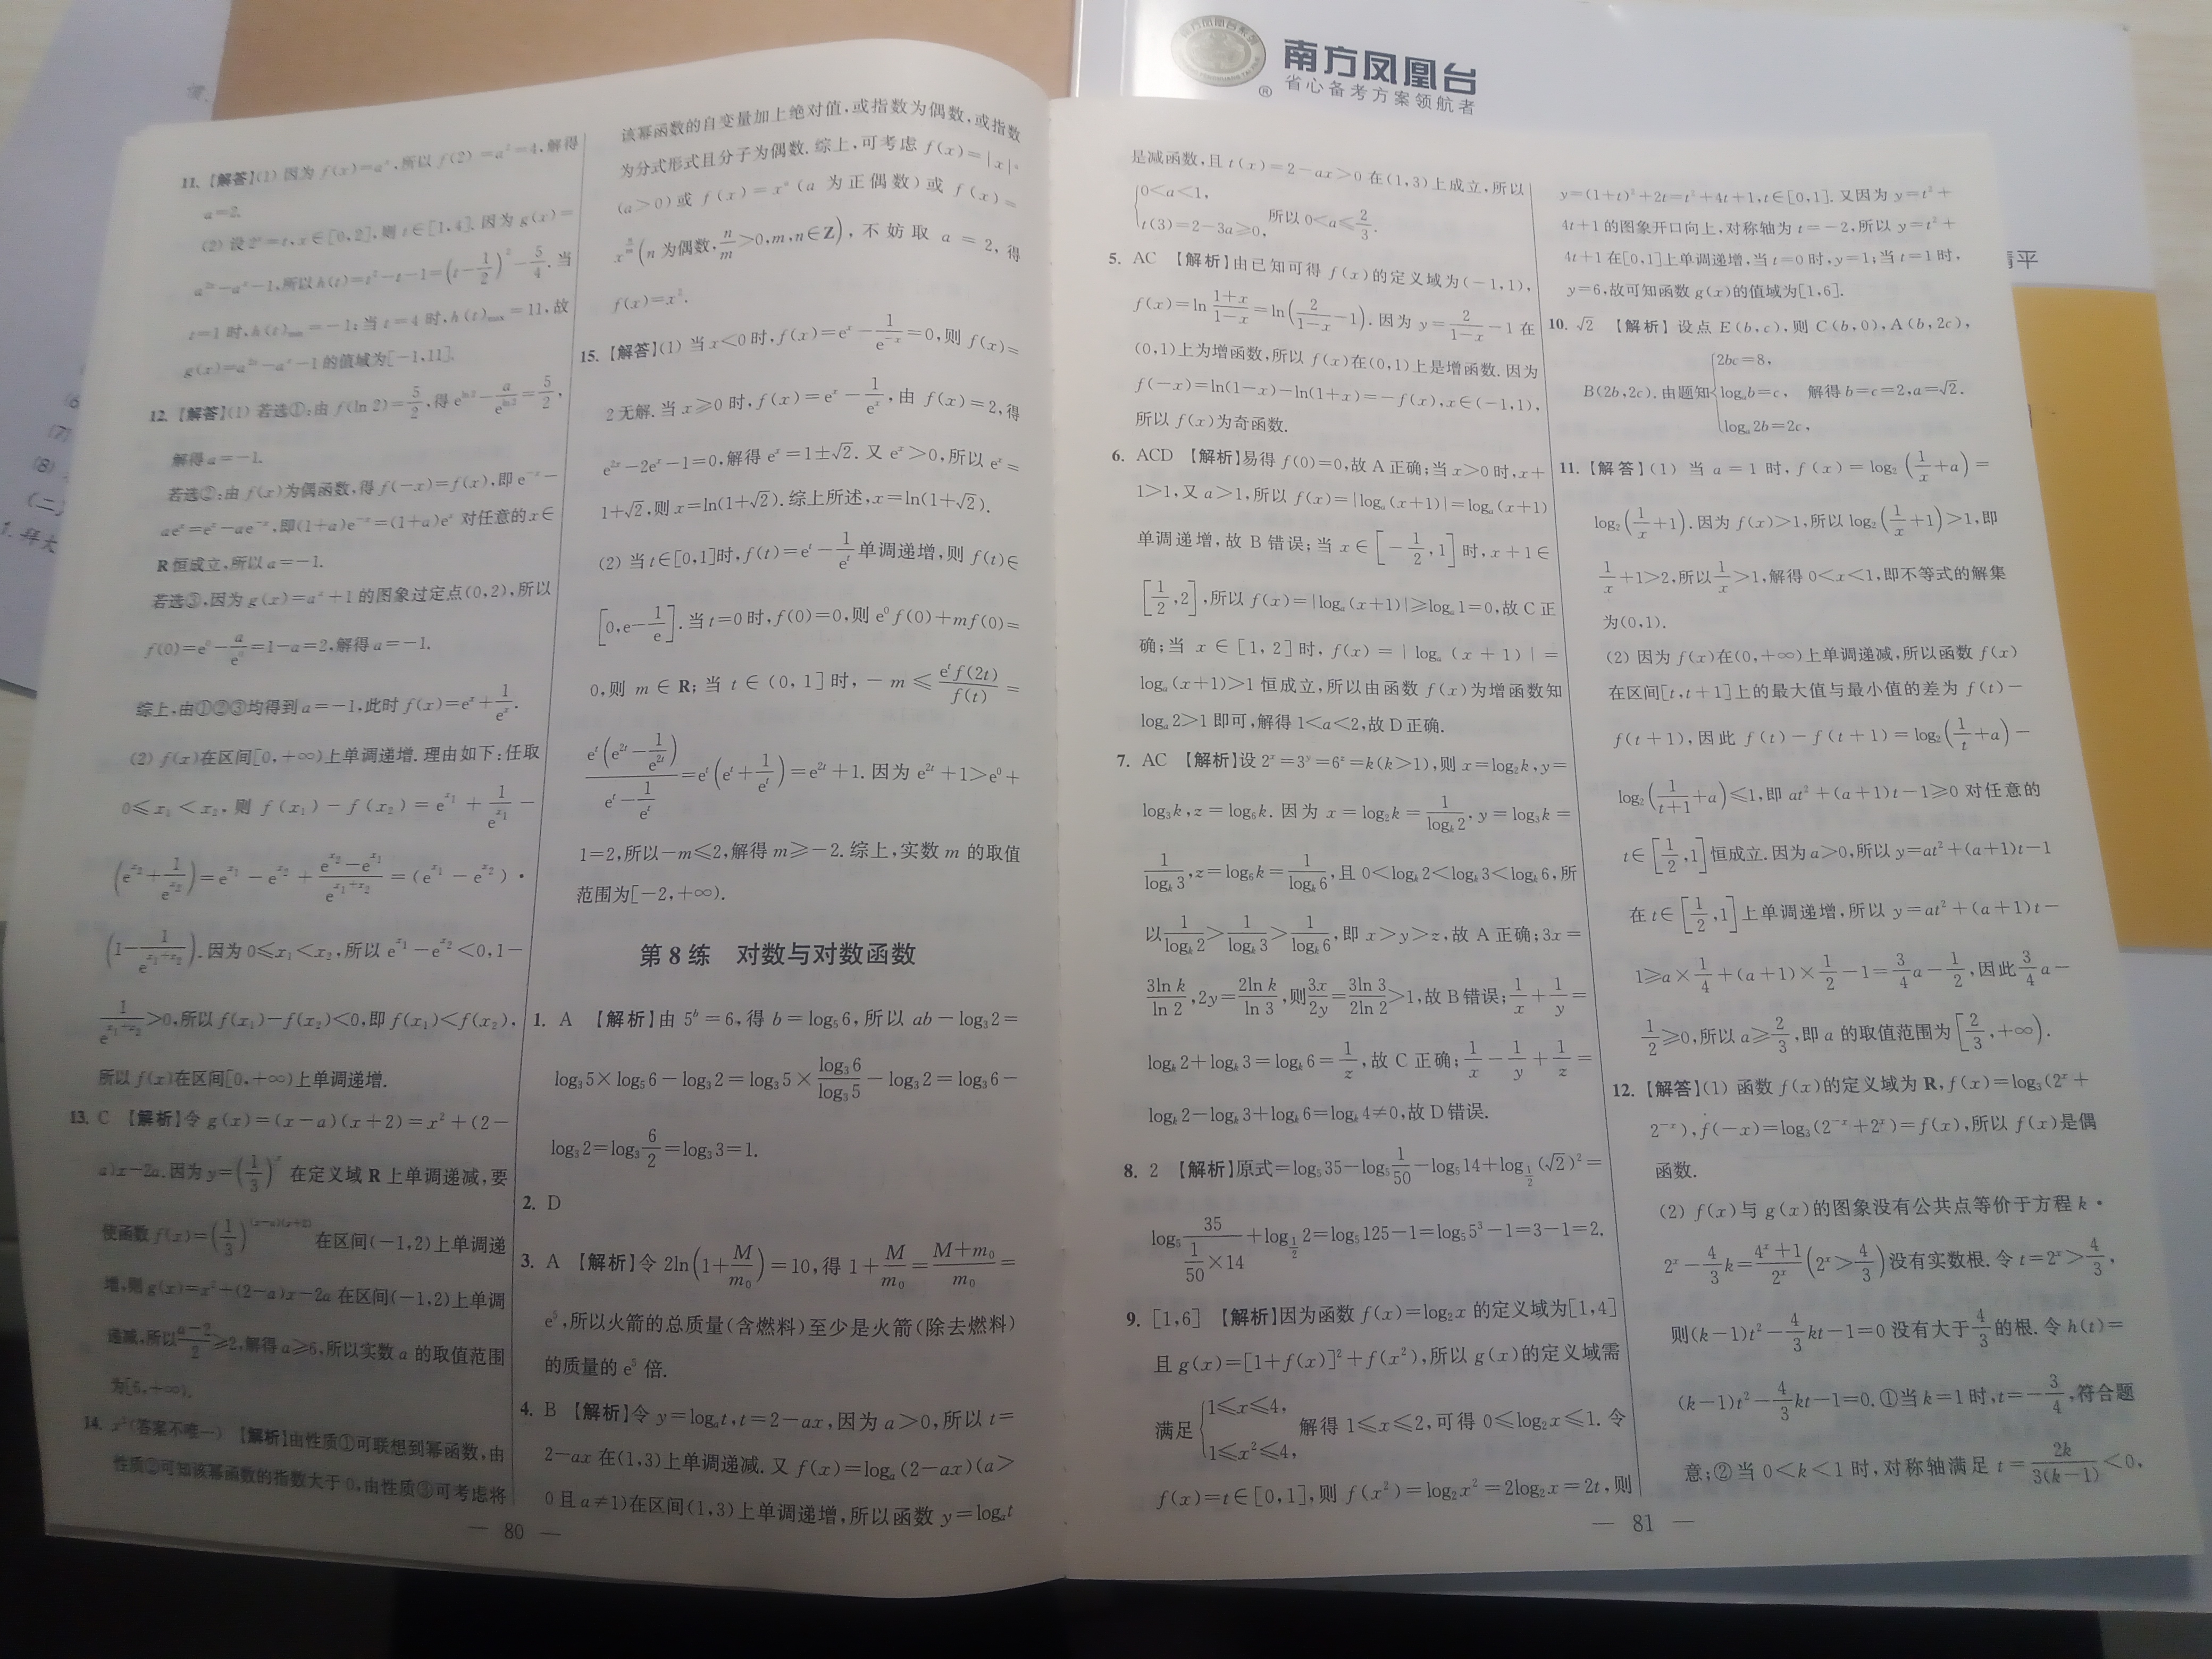 南方凤凰台
省心备考方案领航者
®
青平
(6
(7)
(8)
(二)
1. 拜大
11. 【解答】(1) 因为 f(x)=aˣ,所以 f(2)=a²=4,解得
a=2.
(2) 设 2ˣ=t,x∈[0,2],则 t∈[1,4]. 因为 g(x)=
a²ˣ−aˣ−1,所以 h(t)=t²−t−1=(t−1/2)²−5/4. 当
t=1 时,h(t)min=−1;当 t=4 时,h(t)max=11,故
g(x)=a²ˣ−aˣ−1 的值域为[−1,11].
12. 【解答】(1) 若选①:由 f(ln 2)=5/2,得 e^(ln 2)−a/e^(ln 2)=5/2,
解得 a=−1.
若选②:由 f(x)为偶函数,得 f(−x)=f(x),即 e⁻ˣ−
aeˣ=eˣ−ae⁻ˣ,即(1+a)e⁻ˣ=(1+a)eˣ 对任意的 x∈
R 恒成立,所以 a=−1.
若选③,因为 g(x)=aˣ+1 的图象过定点(0,2),所以
f(0)=e⁰−a/e⁰=1−a=2,解得 a=−1.
综上,由①②③均得到 a=−1,此时 f(x)=eˣ+1/eˣ.
(2) f(x)在区间[0,+∞)上单调递增. 理由如下:任取
0≤x₁<x₂,则 f(x₁)−f(x₂)=e^(x₁)+1/e^(x₁)−
(e^(x₂)+1/e^(x₂))=e^(x₁)−e^(x₂)+(e^(x₂)−e^(x₁))/e^(x₁+x₂)=(e^(x₁)−e^(x₂))·
(1−1/e^(x₁+x₂)). 因为 0≤x₁<x₂,所以 e^(x₁)−e^(x₂)<0,1−
1/e^(x₁+x₂)>0,所以 f(x₁)−f(x₂)<0,即 f(x₁)<f(x₂),
所以 f(x)在区间[0,+∞)上单调递增.
13. C 【解析】令 g(x)=(x−a)(x+2)=x²+(2−
a)x−2a. 因为 y=(1/3)ˣ 在定义域 R 上单调递减,要
使函数 f(x)=(1/3)^((x−a)(x+2)) 在区间(−1,2)上单调递
增,则 g(x)=x²+(2−a)x−2a 在区间(−1,2)上单调
递减,所以(a−2)/2≥2,解得 a≥6,所以实数 a 的取值范围
为[6,+∞).
14. x²(答案不唯一) 【解析】由性质①可联想到幂函数,由
性质②可知该幂函数的指数大于 0,由性质③可考虑将
— 80 —
该幂函数的自变量加上绝对值,或指数为偶数,或指数
为分式形式且分子为偶数. 综上,可考虑 f(x)=|x|ᵃ
(a>0)或 f(x)=xᵃ(a 为正偶数)或 f(x)=
x^(n/m)(n 为偶数,n/m>0,m,n∈Z),不妨取 a=2,得
f(x)=x².
15. 【解答】(1) 当 x<0 时,f(x)=eˣ−1/e⁻ˣ=0,则 f(x)=
2 无解. 当 x≥0 时,f(x)=eˣ−1/eˣ,由 f(x)=2,得
e²ˣ−2eˣ−1=0,解得 eˣ=1±√2. 又 eˣ>0,所以 eˣ=
1+√2,则 x=ln(1+√2). 综上所述,x=ln(1+√2).
(2) 当 t∈[0,1]时,f(t)=eᵗ−1/eᵗ 单调递增,则 f(t)∈
[0,e−1/e]. 当 t=0 时,f(0)=0,则 e⁰f(0)+mf(0)=
0,则 m∈R;当 t∈(0,1]时,−m≤eᵗf(2t)/f(t)=
eᵗ(e²ᵗ−1/e²ᵗ)/(eᵗ−1/eᵗ)=eᵗ(eᵗ+1/eᵗ)=e²ᵗ+1. 因为 e²ᵗ+1>e⁰+
1=2,所以−m≤2,解得 m≥−2. 综上,实数 m 的取值
范围为[−2,+∞).
第 8 练 对数与对数函数
1. A 【解析】由 5ᵇ=6,得 b=log₅6,所以 ab−log₃2=
log₃5×log₅6−log₃2=log₃5×log₃6/log₃5−log₃2=log₃6−
log₃2=log₃6/2=log₃3=1.
2. D
3. A 【解析】令 2ln(1+M/m₀)=10,得 1+M/m₀=(M+m₀)/m₀=
e⁵,所以火箭的总质量(含燃料)至少是火箭(除去燃料)
的质量的 e⁵ 倍.
4. B 【解析】令 y=logₐt,t=2−ax,因为 a>0,所以 t=
2−ax 在(1,3)上单调递减. 又 f(x)=logₐ(2−ax)(a>
0 且 a≠1)在区间(1,3)上单调递增,所以函数 y=logₐt
是减函数,且 t(x)=2−ax>0 在(1,3)上成立,所以
{0<a<1,
t(3)=2−3a≥0, 所以 0<a≤2/3.
5. AC 【解析】由已知可得 f(x)的定义域为(−1,1),
f(x)=ln(1+x)/(1−x)=ln(2/(1−x)−1). 因为 y=2/(1−x)−1 在
(0,1)上为增函数,所以 f(x)在(0,1)上是增函数. 因为
f(−x)=ln(1−x)−ln(1+x)=−f(x),x∈(−1,1),
所以 f(x)为奇函数.
6. ACD 【解析】易得 f(0)=0,故 A 正确;当 x>0 时,x+
1>1,又 a>1,所以 f(x)=|logₐ(x+1)|=logₐ(x+1)
单调递增,故 B 错误;当 x∈[−1/2,1]时,x+1∈
[1/2,2],所以 f(x)=|logₐ(x+1)|≥logₐ1=0,故 C 正
确;当 x∈[1,2]时,f(x)=|logₐ(x+1)|=
logₐ(x+1)>1 恒成立,所以由函数 f(x)为增函数知
logₐ2>1 即可,解得 1<a<2,故 D 正确.
7. AC 【解析】设 2ˣ=3ʸ=6ᶻ=k(k>1),则 x=log₂k,y=
log₃k,z=log₆k. 因为 x=log₂k=1/logₖ2,y=log₃k=
1/logₖ3,z=log₆k=1/logₖ6,且 0<logₖ2<logₖ3<logₖ6,所
以1/logₖ2>1/logₖ3>1/logₖ6,即 x>y>z,故 A 正确;3x=
3ln k/ln 2,2y=2ln k/ln 3,则3x/2y=3ln 3/2ln 2>1,故 B 错误;1/x+1/y=
logₖ2+logₖ3=logₖ6=1/z,故 C 正确;1/x−1/y+1/z=
logₖ2−logₖ3+logₖ6=logₖ4≠0,故 D 错误.
8. 2 【解析】原式=log₅35−log₅1/50−log₅14+log_(1/2)(√2)²=
log₅ 35/(1/50×14)+log_(1/2)2=log₅125−1=log₅5³−1=3−1=2.
9. [1,6] 【解析】因为函数 f(x)=log₂x 的定义域为[1,4]
且 g(x)=[1+f(x)]²+f(x²),所以 g(x)的定义域需
满足{1≤x≤4, 1≤x²≤4, 解得 1≤x≤2,可得 0≤log₂x≤1. 令
f(x)=t∈[0,1],则 f(x²)=log₂x²=2log₂x=2t,则
y=(1+t)²+2t=t²+4t+1,t∈[0,1]. 又因为 y=t²+
4t+1 的图象开口向上,对称轴为 t=−2,所以 y=t²+
4t+1 在[0,1]上单调递增,当 t=0 时,y=1;当 t=1 时,
y=6,故可知函数 g(x)的值域为[1,6].
10. √2 【解析】设点 E(b,c),则 C(b,0),A(b,2c),
B(2b,2c). 由题知{2bc=8, logₐb=c, logₐ2b=2c, 解得 b=c=2,a=√2.
11. 【解答】(1) 当 a=1 时,f(x)=log₂(1/x+a)=
log₂(1/x+1). 因为 f(x)>1,所以 log₂(1/x+1)>1,即
1/x+1>2,所以1/x>1,解得 0<x<1,即不等式的解集
为(0,1).
(2) 因为 f(x)在(0,+∞)上单调递减,所以函数 f(x)
在区间[t,t+1]上的最大值与最小值的差为 f(t)−
f(t+1),因此 f(t)−f(t+1)=log₂(1/t+a)−
log₂(1/(t+1)+a)≤1,即 at²+(a+1)t−1≥0 对任意的
t∈[1/2,1]恒成立. 因为 a>0,所以 y=at²+(a+1)t−1
在 t∈[1/2,1]上单调递增,所以 y=at²+(a+1)t−
1≥a×1/4+(a+1)×1/2−1=3/4a−1/2,因此3/4a−
1/2≥0,所以 a≥2/3,即 a 的取值范围为[2/3,+∞).
12. 【解答】(1) 函数 f(x)的定义域为 R,f(x)=log₃(2ˣ+
2⁻ˣ),f(−x)=log₃(2⁻ˣ+2ˣ)=f(x),所以 f(x)是偶
函数.
(2) f(x)与 g(x)的图象没有公共点等价于方程 k·
2ˣ−4/3k=(4ˣ+1)/2ˣ(2ˣ>4/3)没有实数根. 令 t=2ˣ>4/3,
则(k−1)t²−4/3kt−1=0 没有大于4/3的根. 令 h(t)=
(k−1)t²−4/3kt−1=0. ①当 k=1 时,t=−3/4,符合题
意;②当 0<k<1 时,对称轴满足 t=2k/3(k−1)<0,
— 81 —